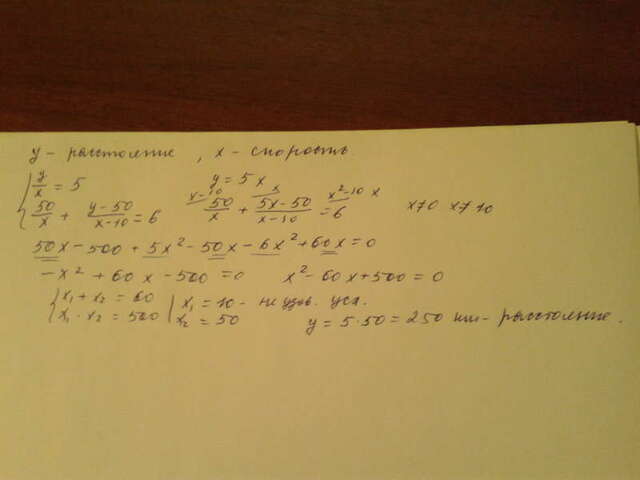 y - расстояние, x - скорость.
y/x = 5 y = 5x
50/x + (y-50)/(x-10) = 6 50/x + (5x-50)/(x-10) = 6 x≠0 x≠10
x-10 x x²-10x
50x - 500 + 5x² - 50x - 6x² + 60x = 0
-x² + 60x - 500 = 0 x² - 60x + 500 = 0
x₁ + x₂ = 60 x₁ = 10 - не удов. усл.
x₁ · x₂ = 500 x₂ = 50 y = 5·50 = 250 км - расстояние.